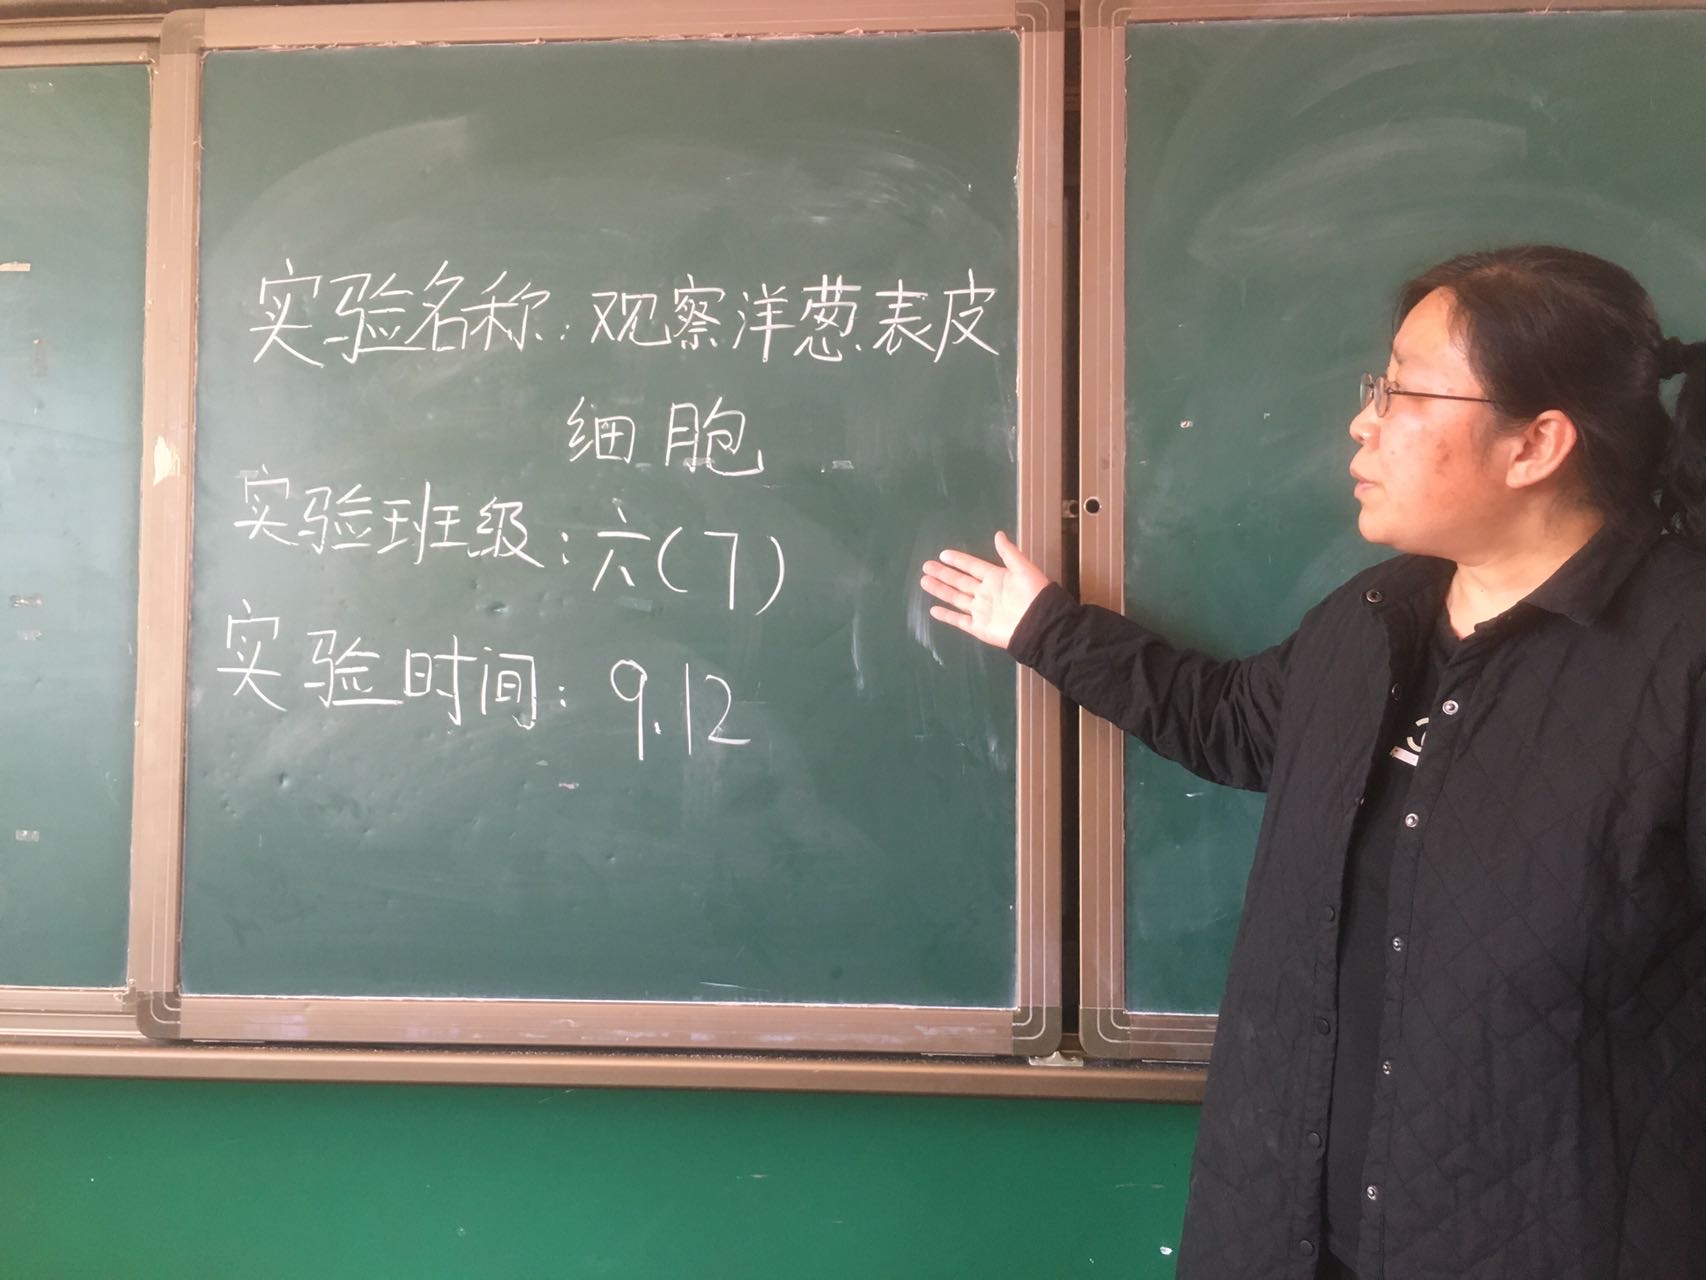 实验名称：观察洋葱表皮
细胞
实验班级：六(7)
实验时间：9.12